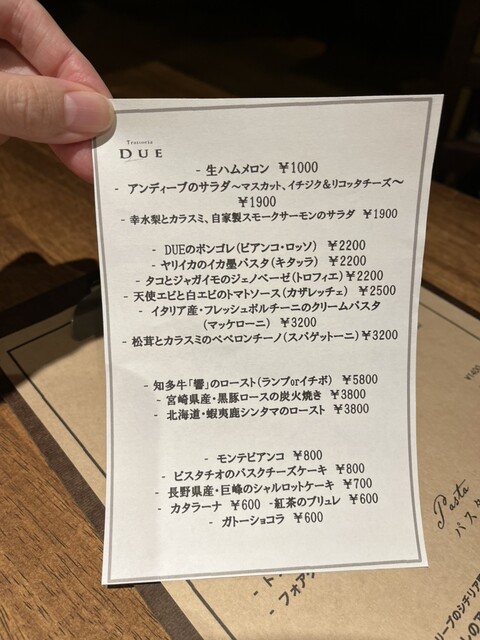 Trattoria
DUE
- 生ハムメロン ¥1000
- アンディーブのサラダ～マスカット、イチジク&リコッタチーズ～
¥1900
- 幸水梨とカラスミ、自家製スモークサーモンのサラダ ¥1900
- DUEのボンゴレ(ビアンコ・ロッソ) ¥2200
- ヤリイカのイカ墨パスタ(キタッラ) ¥2200
- タコとジャガイモのジェノベーゼ(トロフィエ)¥2200
- 天使エビと白エビのトマトソース(カザレッチェ) ¥2500
- イタリア産・フレッシュポルチーニのクリームパスタ
(マッケローニ) ¥3200
- 松茸とカラスミのペペロンチーノ(スパゲットーニ)¥3200
- 知多牛「響」のロースト(ランプorイチボ) ¥5800
- 宮崎県産・黒豚ロースの炭火焼き ¥3800
- 北海道・蝦夷鹿シンタマのロースト ¥3800
- モンテビアンコ ¥800
- ピスタチオのバスクチーズケーキ ¥800
- 長野県産・巨峰のシャルロットケーキ ¥700
- カタラーナ ¥600 -紅茶のブリュレ ¥600
- ガトーショコラ ¥600
¥1,400
Pasta
パスタ
- フォア
リーブのシチリア